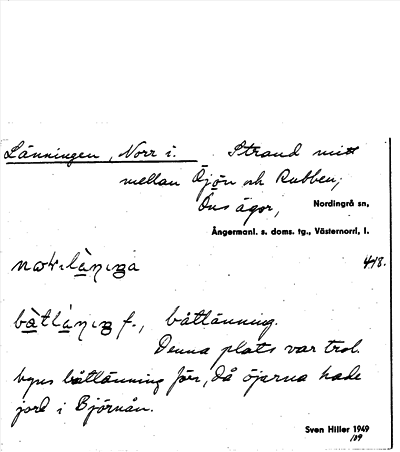 Länningen, Norr i. Strand mitt
mellan Öjön och Rubben;
Öns ägor, Nordingrå sn,
Ångermanl. s. doms. tg., Västernorrl. l.
nɷrìlàniŋa 448.
bàtlániŋ f., båtlänning.
Denna plats var trol.
byns båtlänning förr, då öjarna hade
jord i Björnån.
Sven Hiller 1949
/109